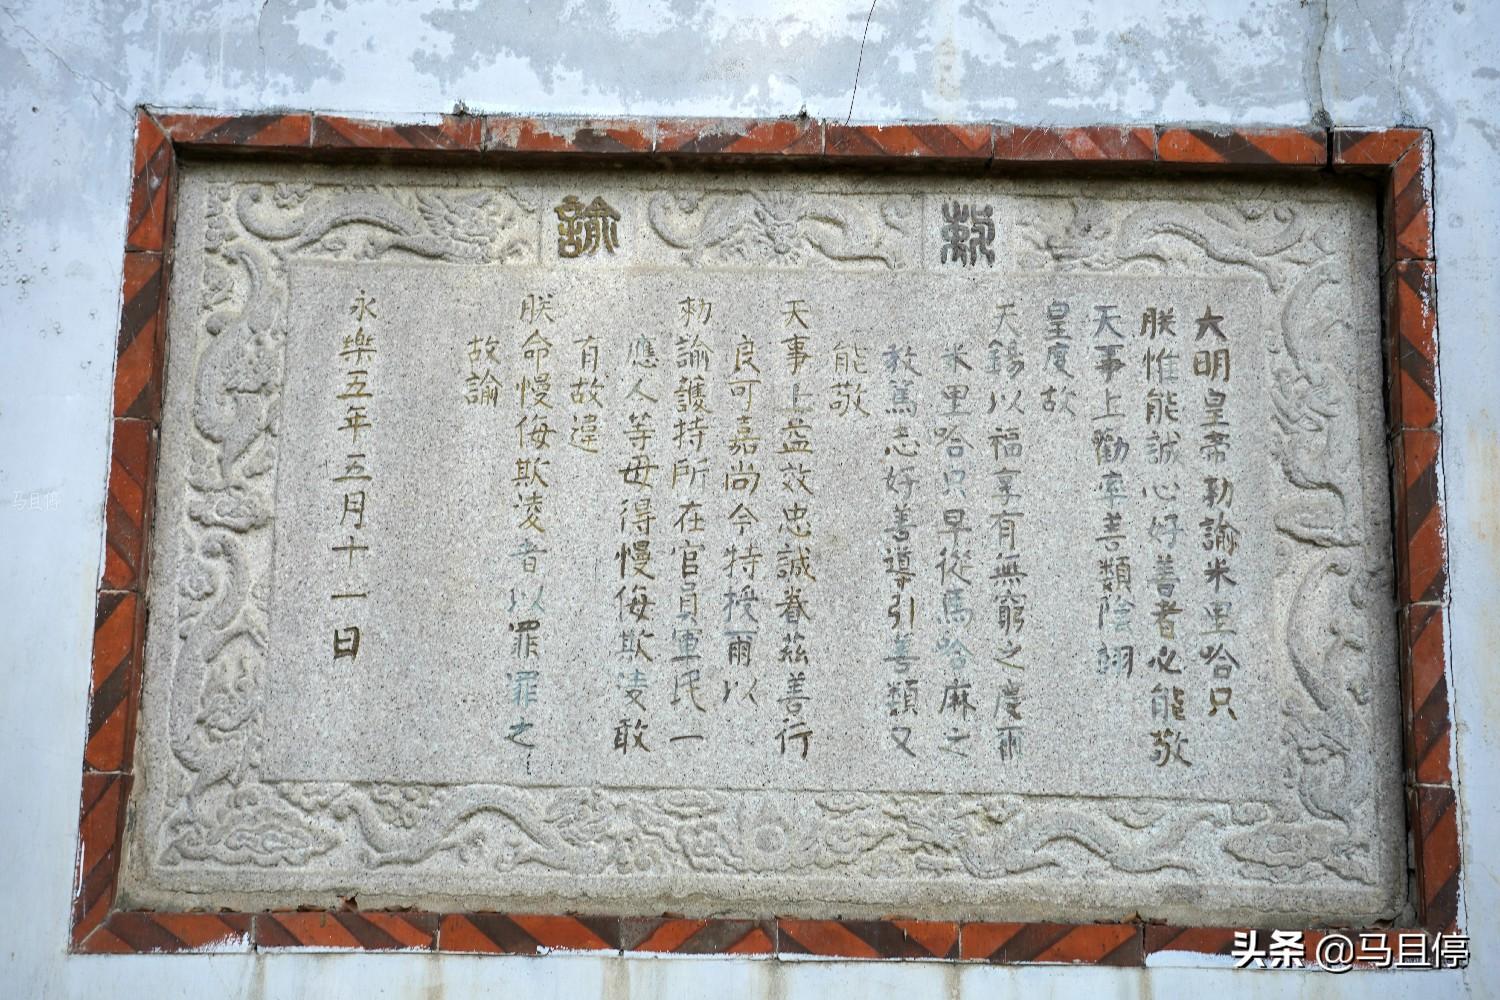 敕諭
大明皇帝勅諭米里哈只
朕惟能誠心好善者必能敬
天事上勸率善類陰翊
皇度故
天錫以福享有無窮之慶爾
米里哈只早從馬哈麻之
教篤志好善導引善類又
能敬
天事上益效忠誠眷茲善行
良可嘉尚今特授爾以
勅諭護持所在官員軍民一
應人等毋得慢侮欺凌敢
有故違
朕命慢侮欺凌者以罪罪之
故諭
永樂五年五月十一日
头条 @马且停
马且停